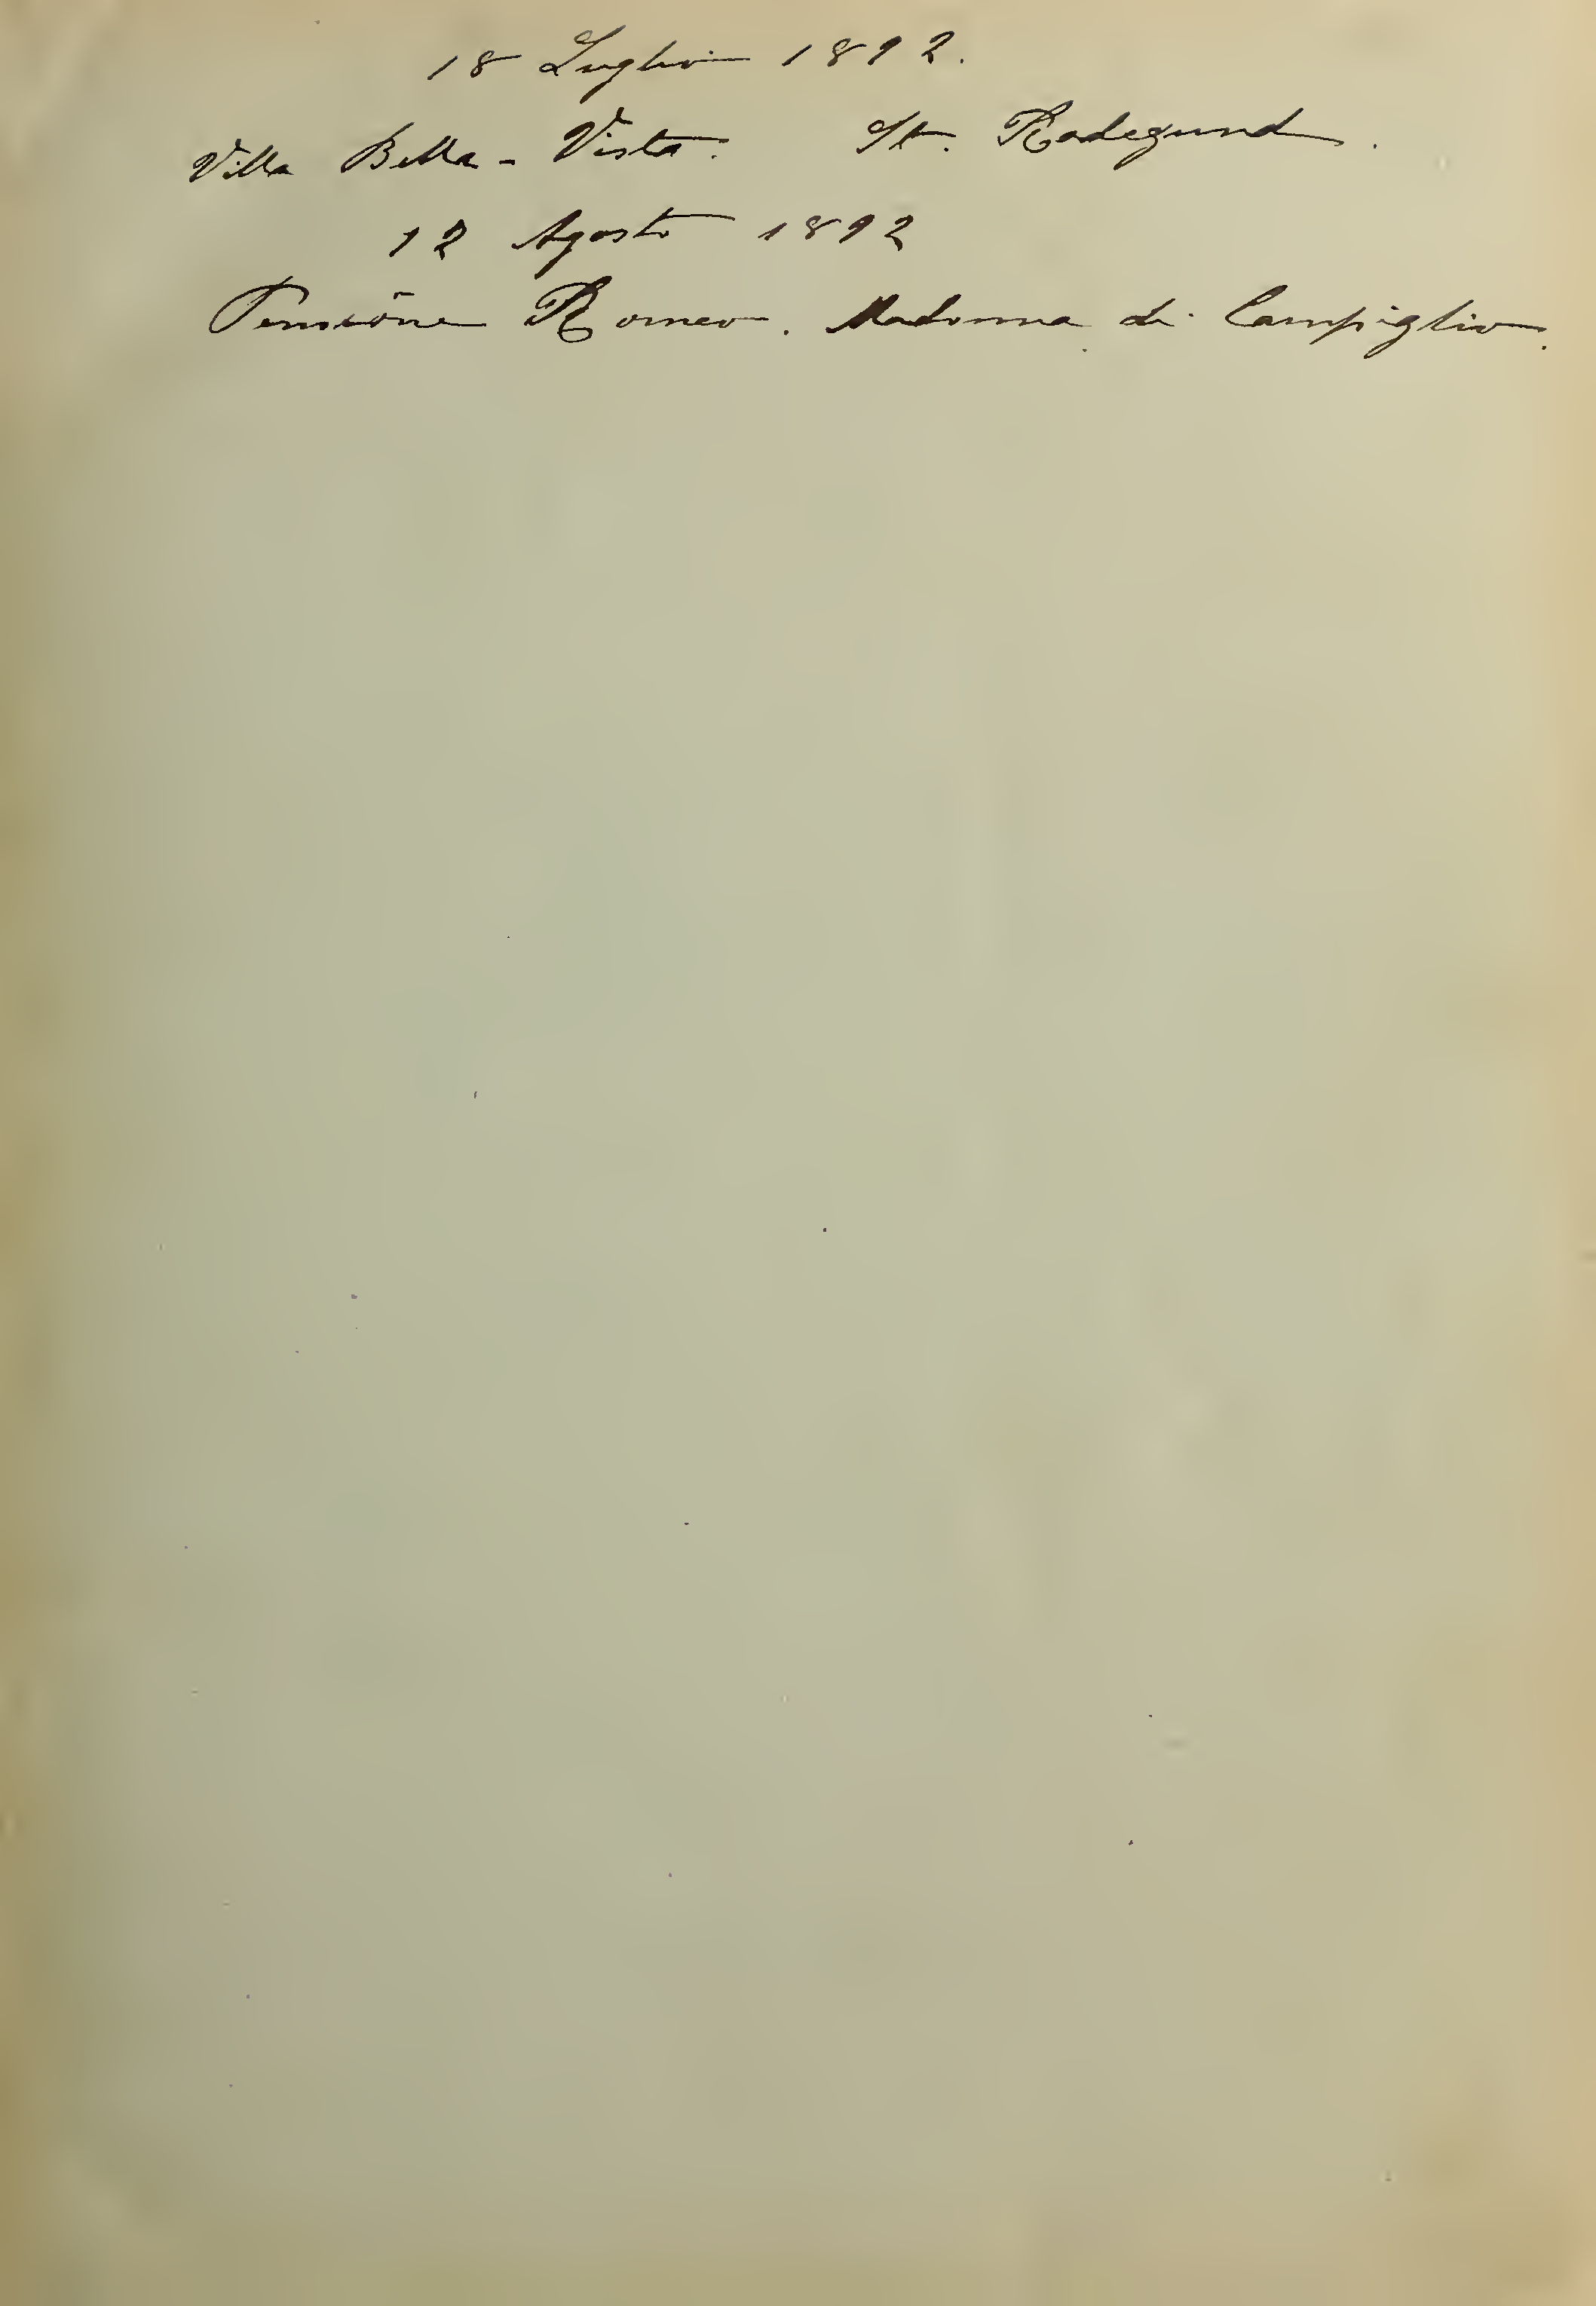 18 Luglio 1892.
Villa Bella-Vista. St. Radegund.
12 Agosto 1892
Pensione Romeo. Madonna di Campiglio.